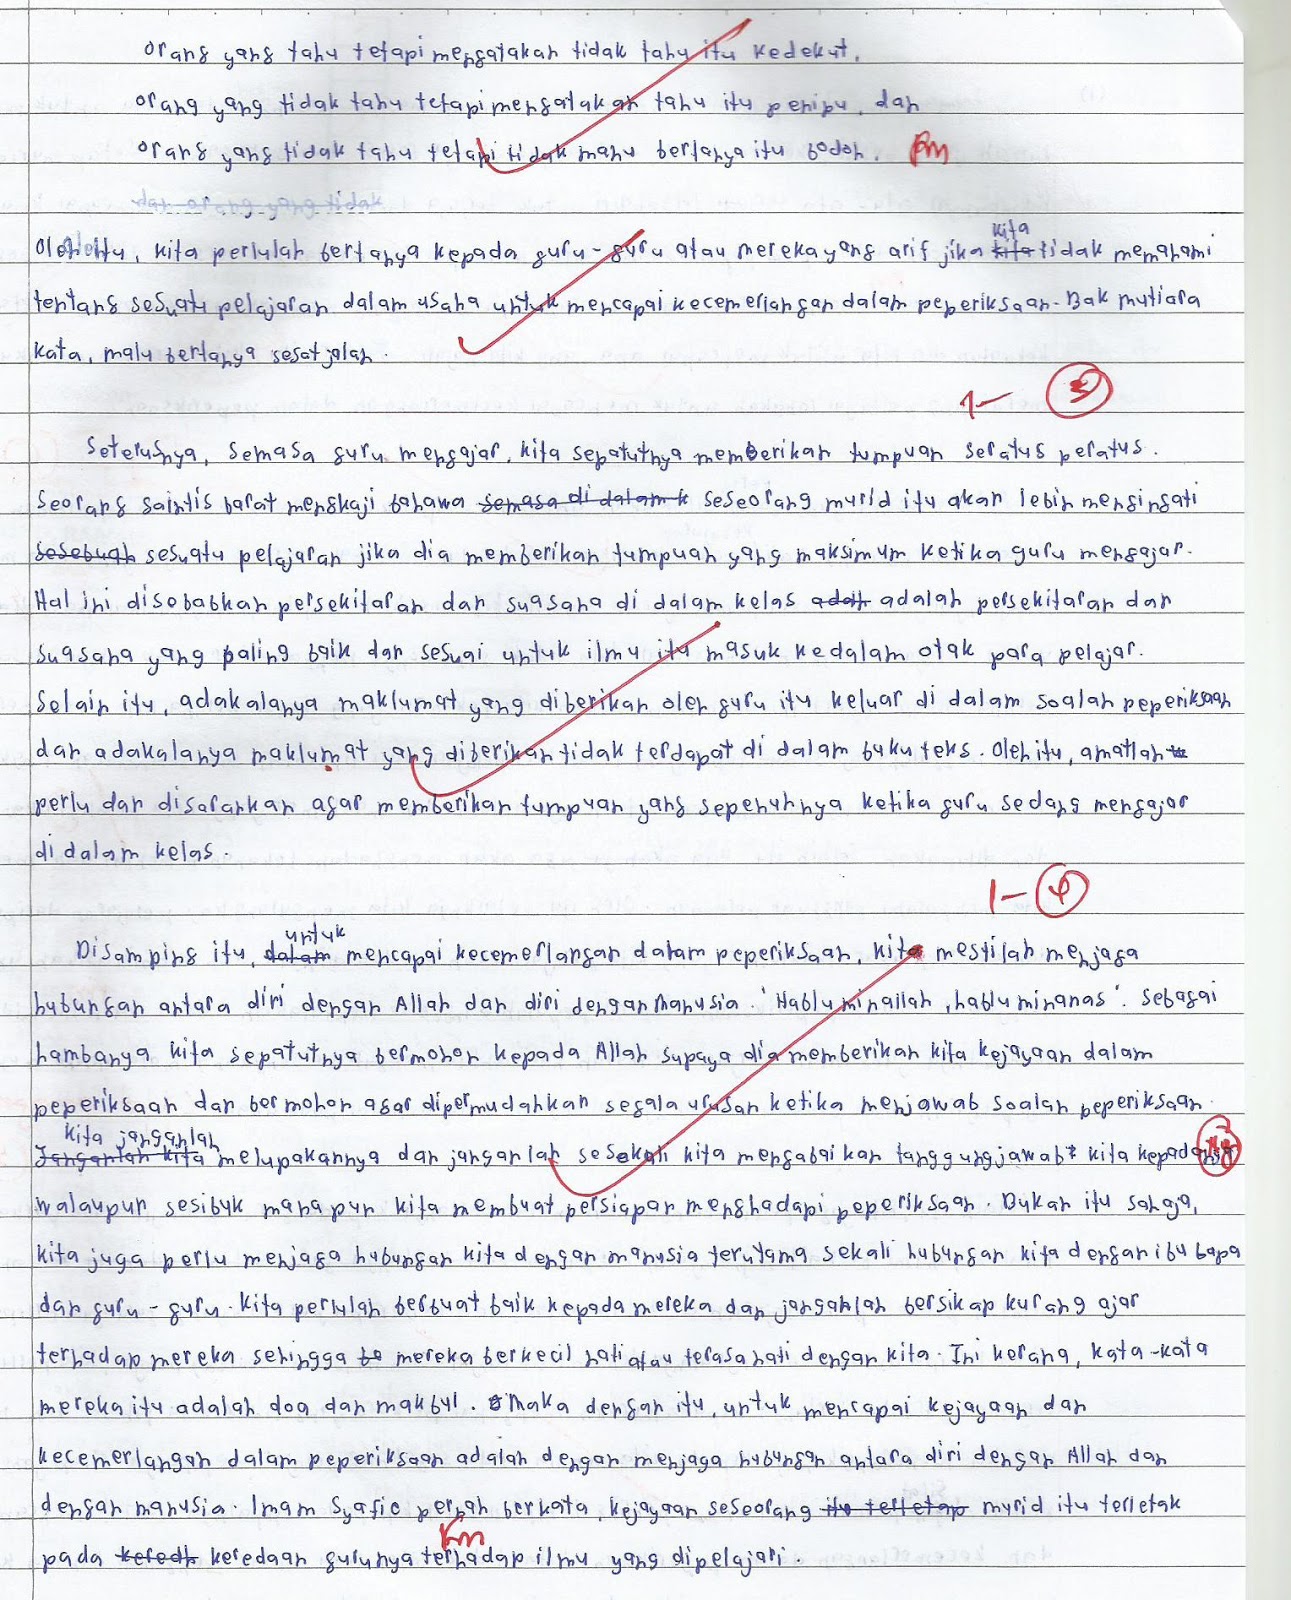 orang yang tahu tetapi mengatakan tidak tahu itu kedekut,
orang yang tidak tahu tetapi mengatakan tahu itu penipu, dan
orang yang tidak tahu tetapi tidak mahu bertanya itu bodoh. Pm
Oleh itu, kita perlulah bertanya kepada guru-guru atau mereka yang arif jika kita kita tidak memahami
tentang sesuatu pelajaran dalam usaha untuk mencapai kecemerlangan dalam peperiksaan. Bak mutiara
kata, malu bertanya sesat jalan.
1- 3
Seterusnya, semasa guru mengajar, kita sepatutnya memberikan tumpuan seratus peratus.
Seorang saintis barat mengkaji bahawa semasa di dalam k seseorang murid itu akan lebih mengingati
sesebuah sesuatu pelajaran jika dia memberikan tumpuan yang maksimum ketika guru mengajar.
Hal ini disebabkan persekitaran dan suasana di dalam kelas adalh adalah persekitaran dan
suasana yang paling baik dan sesuai untuk ilmu itu masuk kedalam otak para pelajar.
Selain itu, adakalanya maklumat yang diberikan oleh guru itu keluar di dalam soalan peperiksaan
dan adakalanya maklumat yang diberikan tidak terdapat di dalam buku teks. Oleh itu, amatlah
perlu dan disarankan agar memberikan tumpuan yang sepenuhnya ketika guru sedang mengajar
di dalam kelas.
1- 4
Disamping itu, dalam untuk mencapai kecemerlangan dalam peperiksaan, kita mestilah menjaga
hubungan antara diri dengan Allah dan diri dengan manusia. 'Hablu minallah, hablu minanas'. Sebagai
hambanya kita sepatutnya bermohon kepada Allah supaya dia memberikan kita kejayaan dalam
peperiksaan dan bermohon agar dipermudahkan segala urusan ketika menjawab soalan peperiksaan.
kita janganlah
Janganlah kita melupakannya dan janganlah sesekali kita mengabaikan tanggungjawab kita kepadanya
walaupun sesibuk mana pun kita membuat persiapan menghadapi peperiksaan. Bukan itu sahaja,
kita juga perlu menjaga hubungan kita dengan manusia terutama sekali hubungan kita dengan ibu bapa
dan guru-guru. Kita perlulah berbuat baik kepada mereka dan janganlah bersikap kurang ajar
terhadap mereka sehingga be mereka berkecil hati atau terasa hati dengan kita. Ini kerana, kata-kata
mereka itu adalah doa dan makbul. Maka dengan itu, untuk mencapai kejayaan dan
kecemerlangan dalam peperiksaan adalah dengan menjaga hubungan antara diri dengan Allah dan
dengan manusia. Imam Syafie pernah berkata, kejayaan seseorang itu terletap murid itu terletak
pada keredh keredaan gurunya terhadap ilmu yang dipelajari.